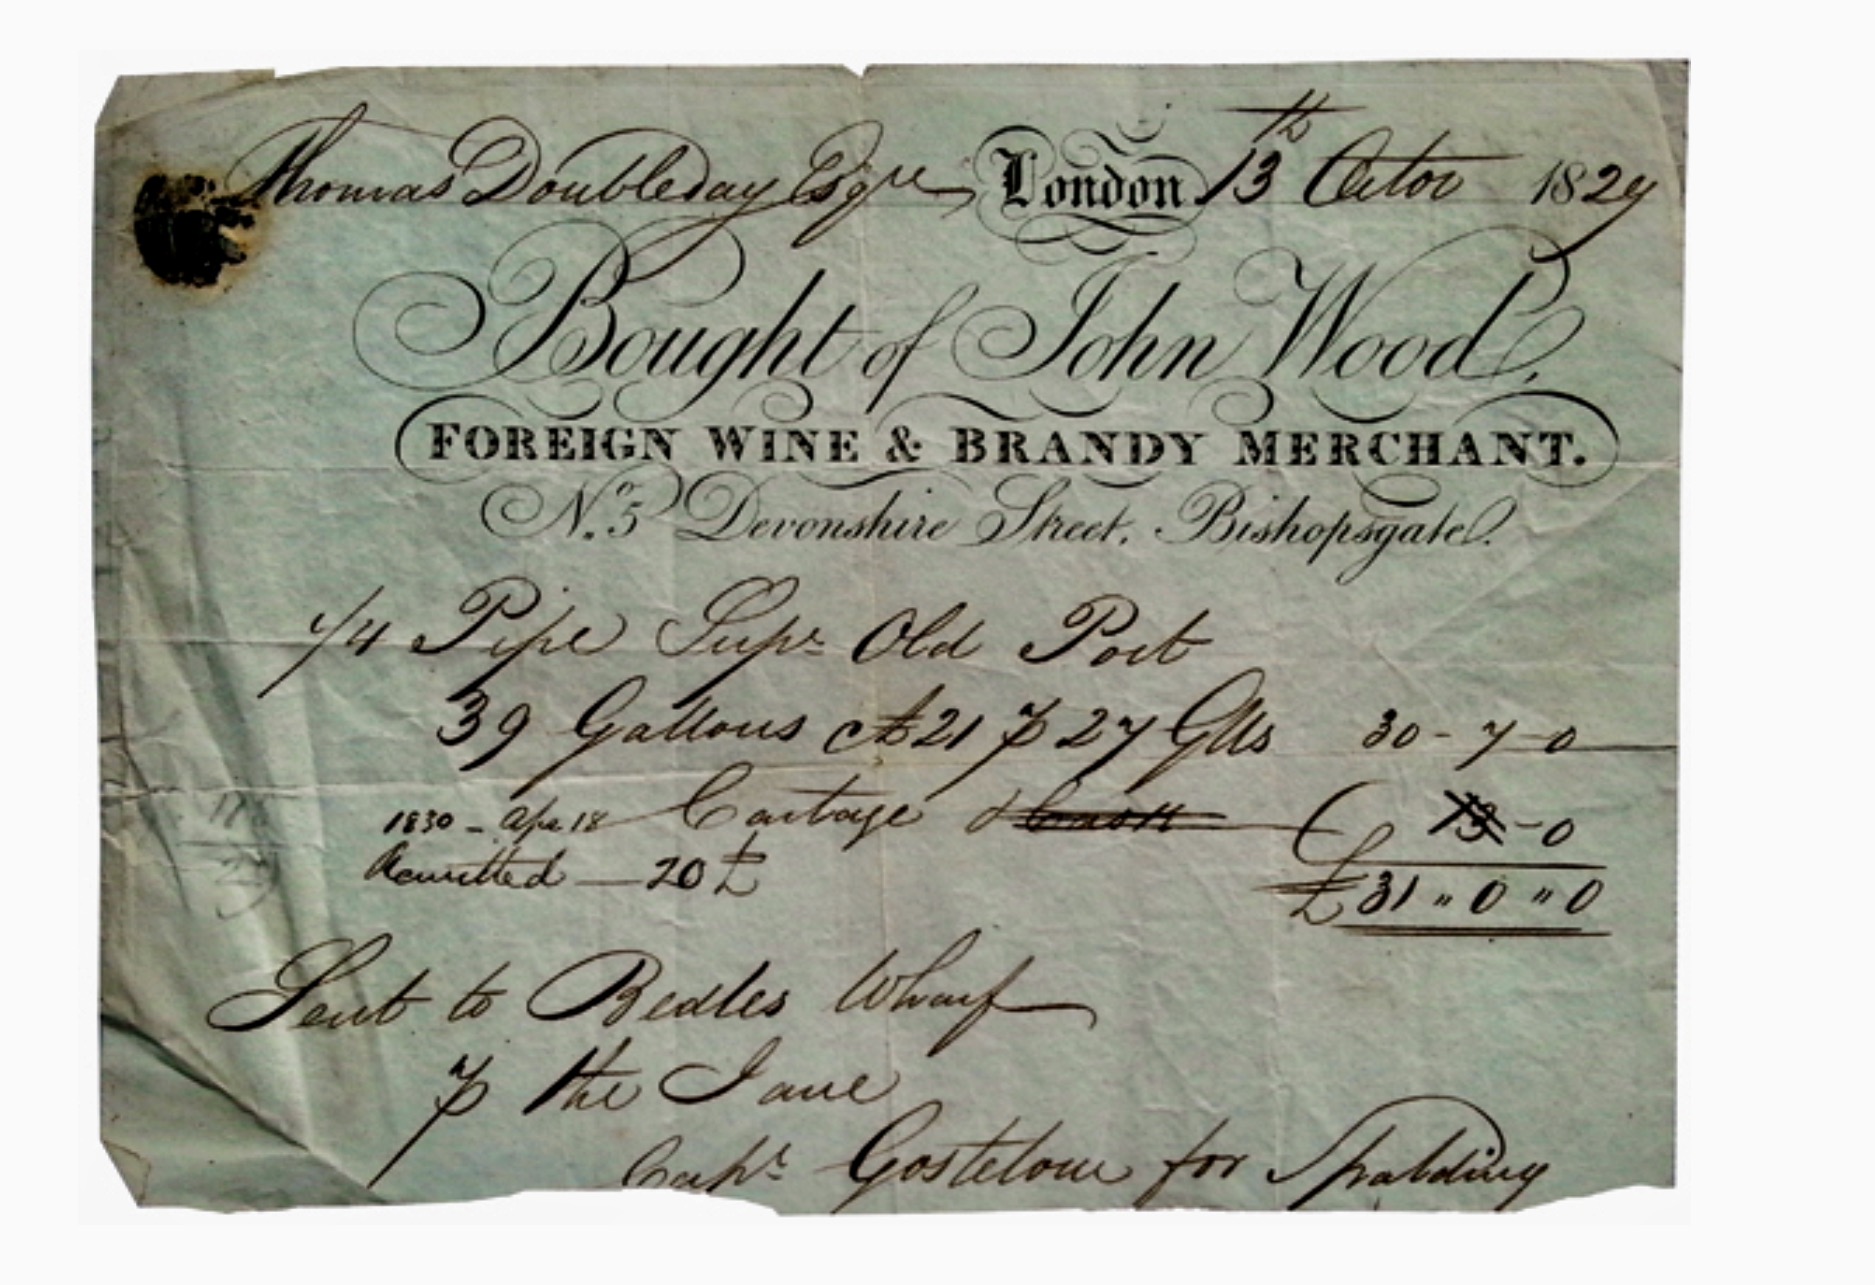 Thomas Doubleday Esqre London 13th Octor 1829
Bought of John Wood,
FOREIGN WINE & BRANDY MERCHANT.
No. 5 Devonshire Street, Bishopsgate.
1/4 Pipe Supr Old Port
39 Gallons At 21 ⅌ 27 Glls 30-7-0
1830 - Apr 18 Cartage & Cask 13-0
Remitted - 20£ £31 " 0 " 0
Sent to Beales Wharf
⅌ the Jane
Capt Gostelow for Spalding